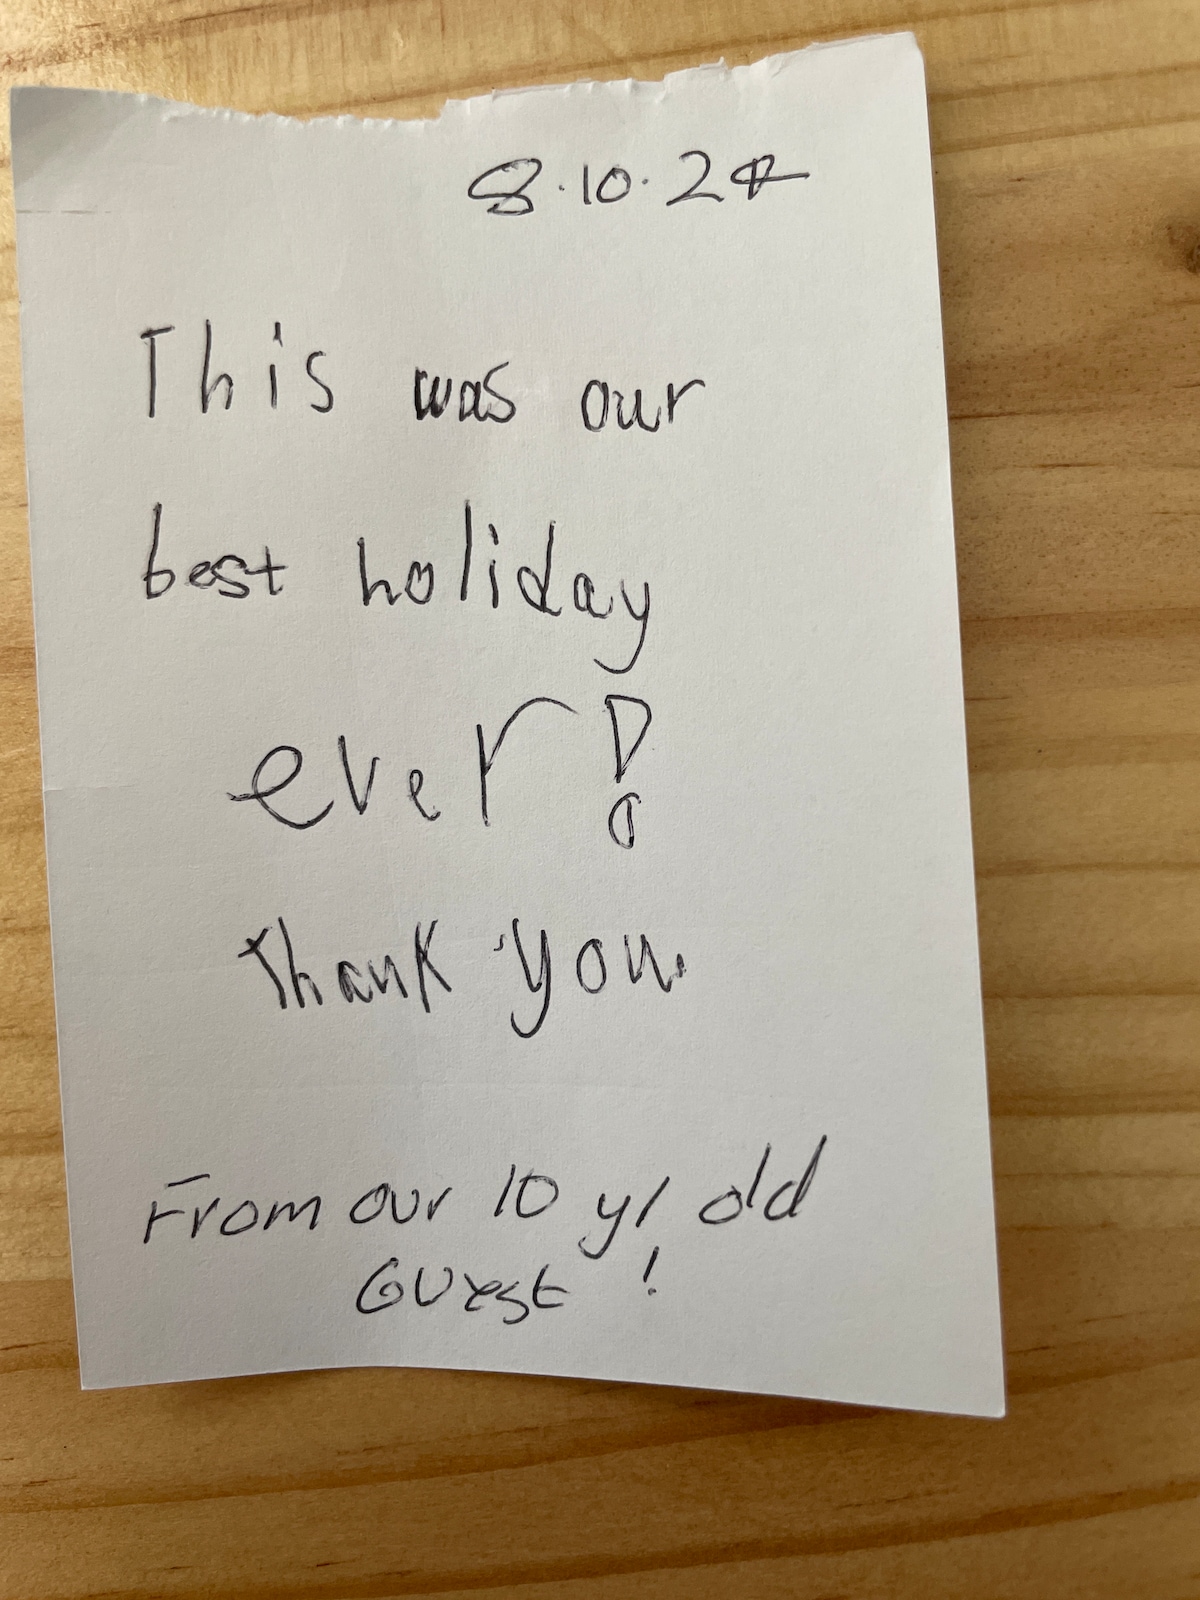 8.10.24
This was our
best holiday
ever!
Thank you.
From our 10 yr old
Guest!